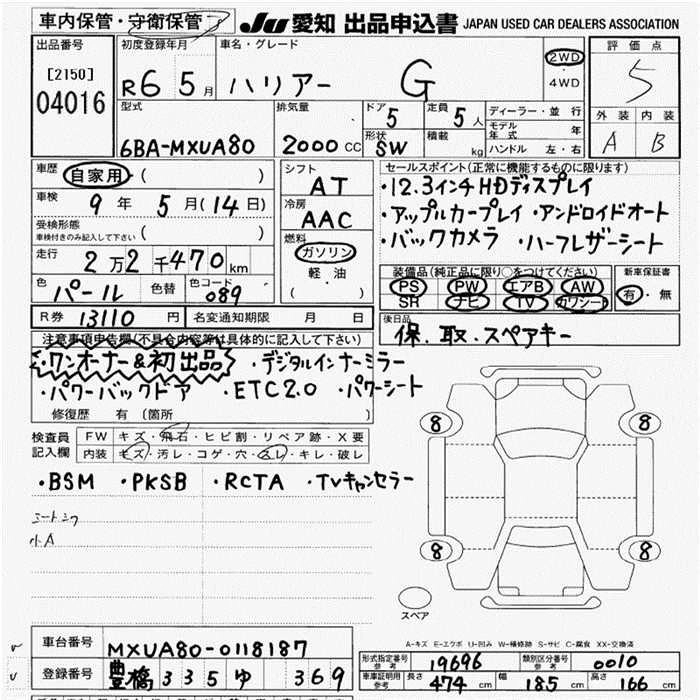 車内保管・守衛保管 JU 愛知 出品申込書 JAPAN USED CAR DEALERS ASSOCIATION
出品番号 初度登録年月 車名・グレード 評価点
[2150] R6 5月 ハリアー G 2WD・4WD 5
04016
型式 排気量 ドア 5 定員 5人 ディーラー・並行 外装 内装
6BA-MXUA80 2000cc 形状 SW 積載 kg モデル年式 年 A B
ハンドル 左・右
車歴 自家用・( ) シフト AT セールスポイント(正常に機能するものに限ります)
車検 9年 5月(14日) 冷房 AAC ・12.3インチHDディスプレイ
受検形態 ( ) ・アップルカープレイ・アンドロイドオート
車検付きのみ記入して下さい 燃料 ・バックカメラ ・ハーフレザーシート
走行 2万2千470km ガソリン・軽油
色 パール 色替 色コード 089 ( )
装備品(純正品に限り○をつけてください) 新車保証書
PS PW エアB AW 有・無
SR ナビ TV カワシート
R券 13110円 名変通知期限 月 日 後日品
保.取.スペアキー
注意事項申告欄(不具合内容等は具体的に記入して下さい)
・ワンオーナー&初出品 ・デジタルインナーミラー
・パワーバックドア ・ETC2.0 ・パワーシート
修復歴 有(箇所 )
検査員記入欄 FW キズ・飛石・ヒビ割・リペア跡・X要
内装 キズ・汚レ・コゲ・穴・スレ・キレ・破レ
・BSM ・PKSB ・RCTA ・TVキャンセラー
8 8
8 8
スペア
A-キズ E-エクボ U-凹み W-補修跡 S-サビ C-腐食 XX-交換済
車台番号 MXUA80-0118187
登録番号 豊橋 335 ゆ 369
形式指定番号 参考 19696 類別区分番号 参考 0010
車車証明用 参考 長さ 474cm 幅 185cm 高さ 166cm